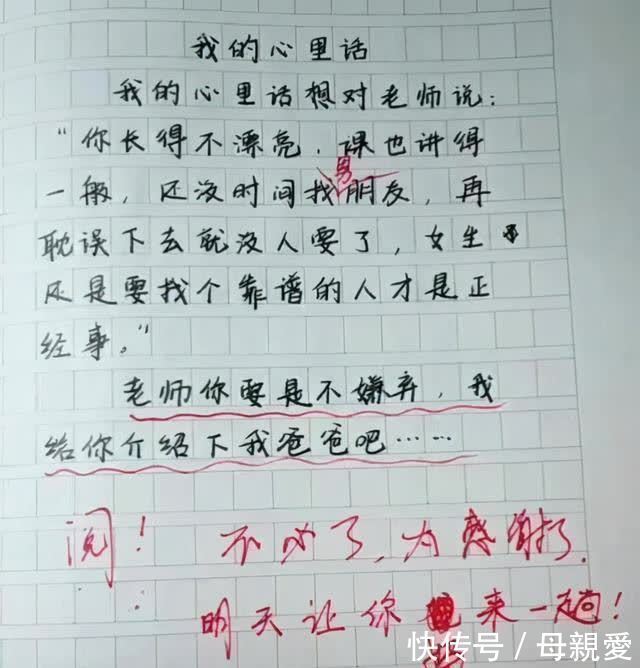 我的心里话
我的心里话想对老师说：
“你长得不漂亮，课也讲得
一般，还没时间找男朋友，再
耽误下去就没人要了，女生
还是要找个靠谱的人才是正
经事。”
老师你要是不嫌弃，我
给你介绍下我爸爸吧……
阅！ 不必了，
明天让你 来一趟！
快传号 / 母親愛